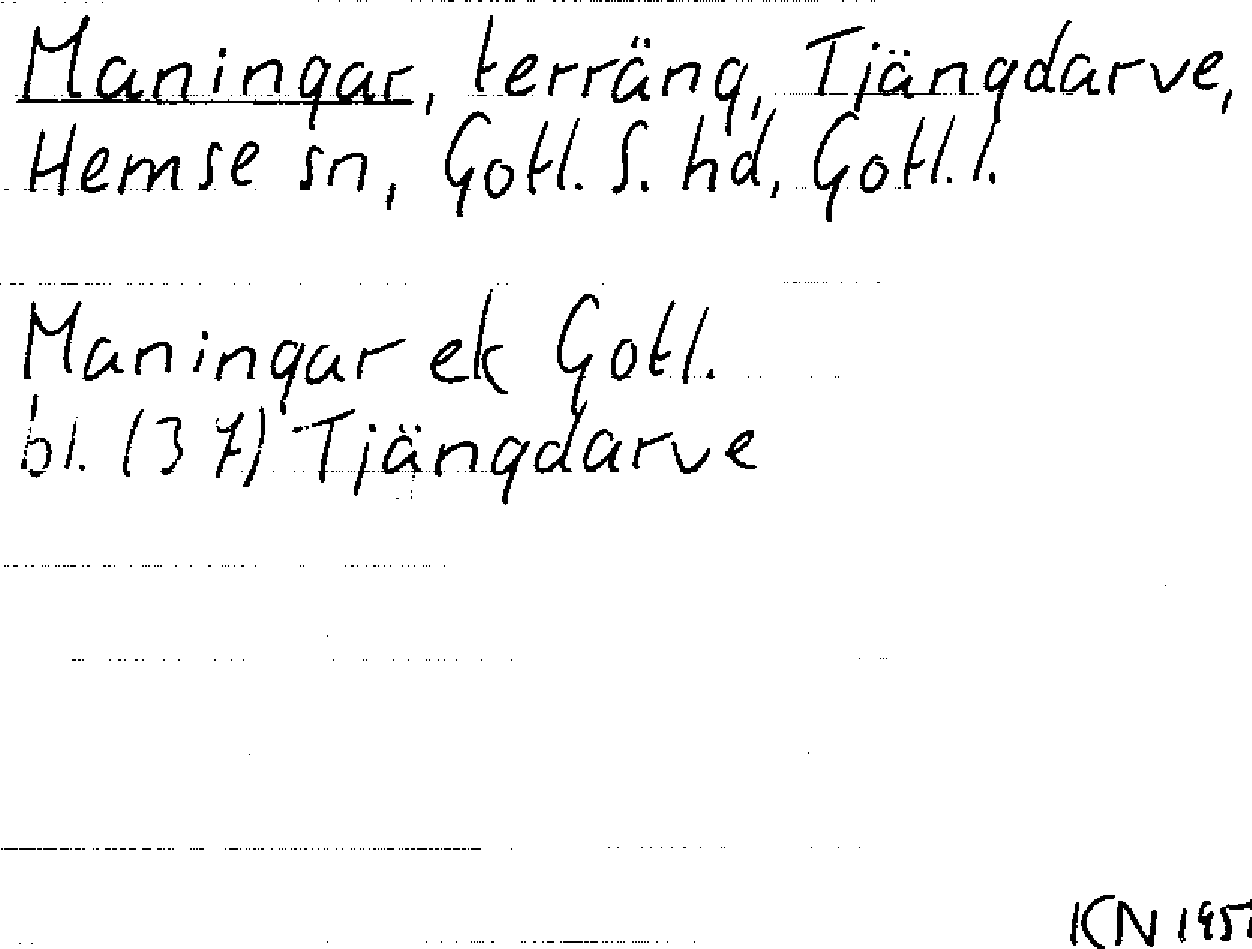 Maningar, terräng, Tjängdarve,
Hemse sn, Gotl. S. hd, Gotl. l.
Maningar ek Gotl.
bl. (37) Tjängdarve
KN 1951